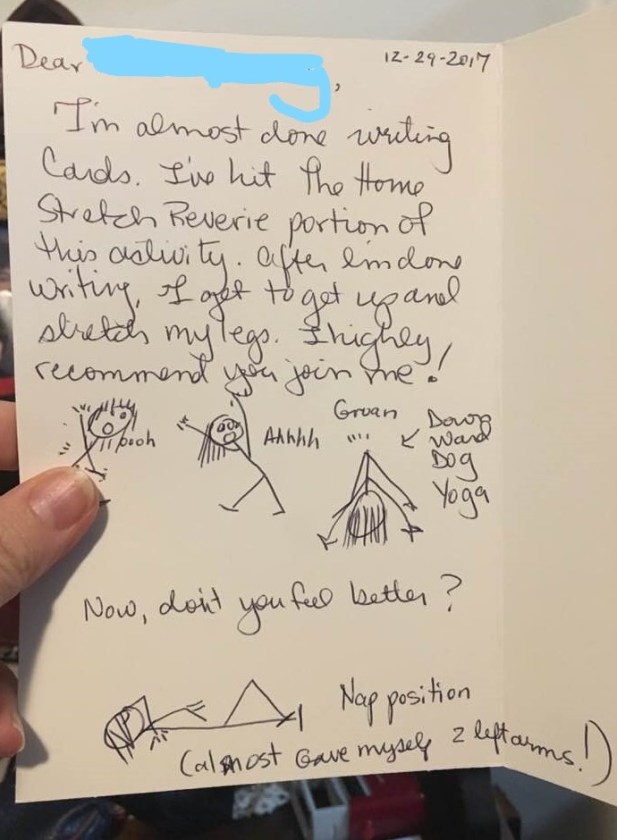 Dear ,
12-29-2017
I'm almost done writing
Cards. I've hit the Home
Stretch Reverie portion of
this activity. After I'm done
writing, I get to get up and
stretch my legs. I highly
recommend you join me!
pooh
Ahhhh
Groan
Downg
Ward
Dog
Yoga
Now, don't you feel better?
Nap position
(almost Gave myself 2 left arms!)